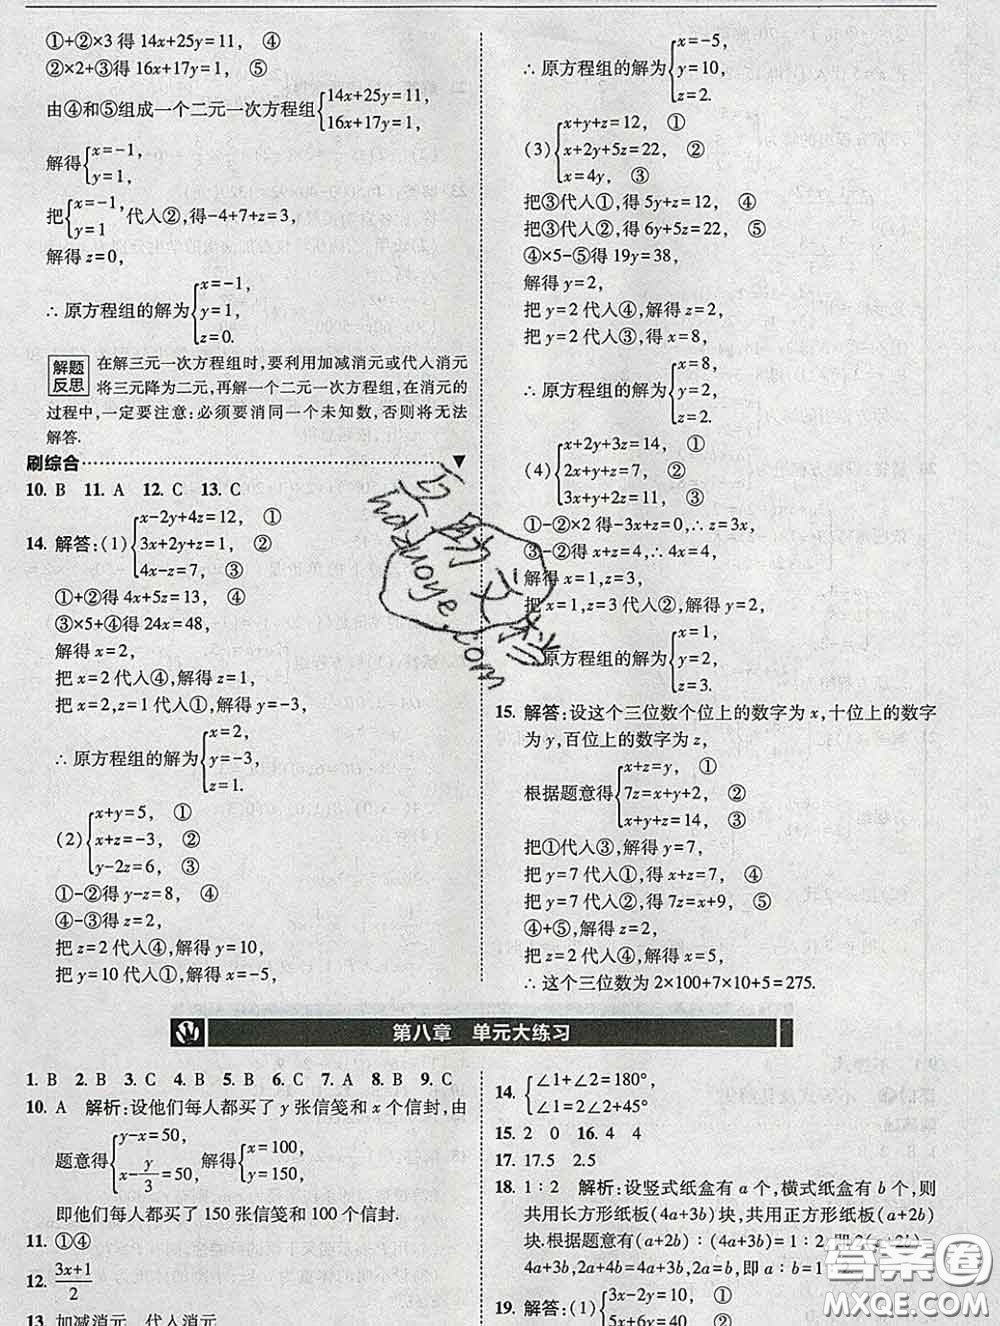 ①+②×3 得 14x+25y=11, ④
②×2+③得 16x+17y=1, ⑤
由④和⑤组成一个二元一次方程组{14x+25y=11,
16x+17y=1,
解得{x=-1,
y=1,
把{x=-1,
y=1 代人②,得-4+7+z=3,
解得 z=0,
∴ 原方程组的解为{x=-1,
y=1,
z=0.
解题反思 在解三元一次方程组时,要利用加减消元或代人消元
将三元降为二元,再解一个二元一次方程组,在消元的
过程中,一定要注意:必须要消同一个未知数,否则将无法
解答.
刷综合
10. B 11. A 12. C 13. C
14. 解答:(1){x-2y+4z=12, ①
3x+2y+z=1, ②
4x-z=7, ③
①+②得 4x+5z=13, ④
③×5+④得 24x=48,
解得 x=2,
把 x=2 代人④,解得 z=1,
把 x=2,z=1 代人①,解得 y=-3,
∴ 原方程组的解为{x=2,
y=-3,
z=1.
(2){x+y=5, ①
x+z=-3, ②
y-2z=6, ③
①-②得 y-z=8, ④
④-③得 z=2,
把 z=2 代人④,解得 y=10,
把 y=10 代人①,解得 x=-5,
∴ 原方程组的解为{x=-5,
y=10,
z=2.
(3){x+y+z=12, ①
x+2y+5z=22, ②
x=4y, ③
把③代人①,得 5y+z=12, ④
把③代人②,得 6y+5z=22, ⑤
④×5-⑤得 19y=38,
解得 y=2,
把 y=2 代人④,解得 z=2,
把 y=2 代人③,得 x=8,
∴ 原方程组的解为{x=8,
y=2,
z=2.
(4){x+2y+3z=14, ①
2x+y+z=7, ②
3x+y+2z=11, ③
①-②×2得-3x+z=0,∴ z=3x,
③-②得 x+z=4,∴ 4x=4,
解得 x=1,z=3,
把 x=1,z=3 代人②,解得 y=2,
原方程组的解为{x=1,
y=2,
z=3.
15. 解答:设这个三位数个位上的数字为 x,十位上的数字
为 y,百位上的数字为 z,
根据题意得{x+z=y, ①
7z=x+y+2, ②
x+y+z=14, ③
把①代人③,解得 y=7,
把 y=7 代人①,得 x+z=7, ④
把 y=7 代人②,得 7z=x+9, ⑤
④+⑤,解得 z=2,
把 z=2 代人④,解得 x=5,
∴ 这个三位数为 2×100+7×10+5=275.
第八章 单元大练习
1. B 2. B 3. C 4. B 5. B 6. C 7. A 8. B 9. C
10. A 解析:设他们每人都买了 y 张信笺和 x 个信封,由
题意得{y-x=50,
x-y/3=50, 解得{x=100,
y=150,
即他们每人都买了 150 张信笺和 100 个信封.
11. ①④
12. (3x+1)/2
13. 加减消元 代人消元
14. {∠1+∠2=180°,
∠1=∠2+45°
15. 2 0 16. 4 4
17. 17.5 2.5
18. 1∶2 解析:设竖式纸盒有 a 个,横式纸盒有 b 个,则
共用长方形纸板(4a+3b)块,共用正方形纸板(a+2b)
块.根据题意有(a+2b)∶(4a+3b)=1∶2,即2(a+2b)=
4a+3b,2a+4b=4a+3b,2a=b,即 a∶b=1∶2.
19. 解答:(1){3x-2y=10, ①
互助文档
hduzuoye.com
答案圈
MXQE.COM